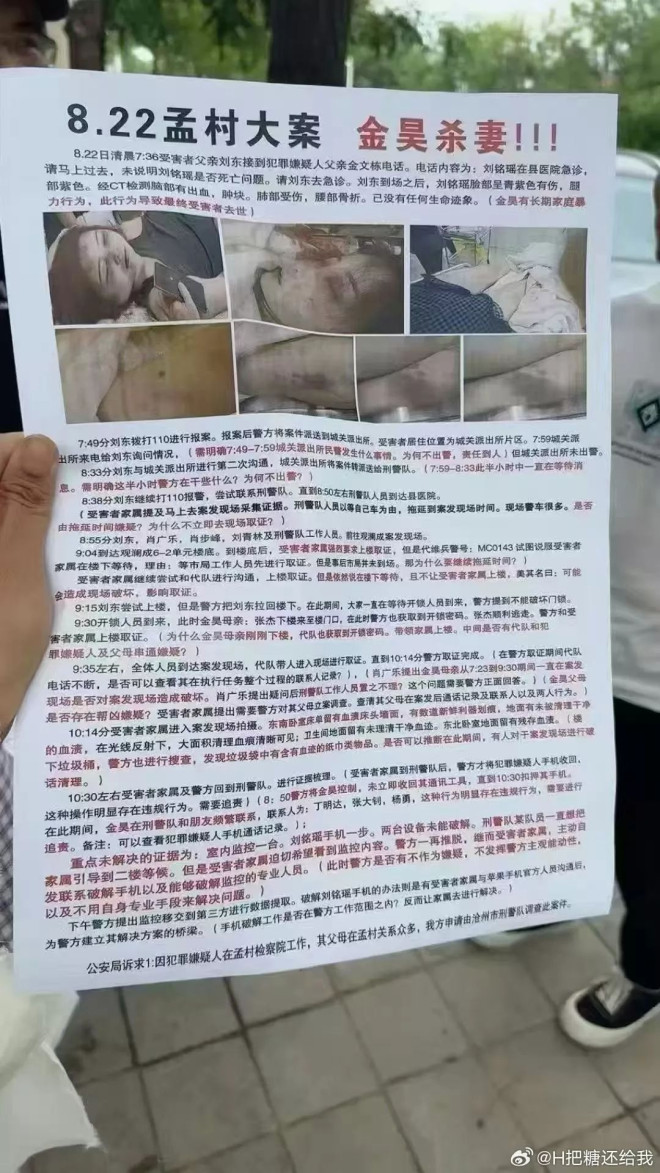 8.22孟村大案 金昊杀妻!!!
8.22日清晨7:36受害者父亲刘东接到犯罪嫌疑人父亲金文栋电话。电话内容为：刘铭瑶在县医院急诊，
请马上过去，未说明刘铭瑶是否死亡问题。请刘东去急诊。刘东到场之后，刘铭瑶脸部呈青紫色有伤，腿
部紫色。经CT检测脑部有出血，肿块。肺部受伤，腰部骨折。已没有任何生命迹象。（金昊有长期家庭暴
力行为，此行为导致最终受害者去世）
7:49分刘东拨打110进行报案。报案后警方将案件派送到城关派出所。受害者居住位置为城关派出所片区。7:59城关派
出所来电给刘东询问情况，（需明确7:49-7:59城关派出所民警发生什么事情。为何不出警，责任到人）但城关派出所未出警。
8:33分刘东与城关派出所进行第二次沟通，城关派出所将案件转派送给刑警队。（7:59-8:33此半小时中一直在等待消
息。需明确这半小时警方在干些什么？为何不出警？）
8:38分刘东继续打110报警，尝试联系刑警队。直到8:50左右刑警队人员到达县医院。
（受害者家属提及马上去案发现场采集证据。刑警队人员以等自己车为由，拖延到案发现场时间。现场警车很多。是否
由拖延时间嫌疑？为什么不立即去现场取证？）
8:55分刘东，肖广乐，肖步峰，刘青林及刑警队工作人员。前往观澜成案发现场。
9:04到达观澜成6-2单元楼底。到楼底后，受害者家属强烈要求上楼取证，但是代维兵警号：MC0143试图说服受害者
家属在楼下等待，理由：等市局工作人员先进行取证。但是事后市局并未到场。那为什么要继续拖延时间？）
受害者家属继续尝试和代队进行沟通，上楼取证。但是依然说在楼下等待，且不让受害者家属上楼，美其名曰：可能
会造成现场破坏，影响取证。
9:15刘东尝试上楼，但是警方把刘东拉回楼下。在此期间，大家一直在等待开锁人员到来，警方提到不能破坏门锁。
9:30开锁人员到来，此时金昊母亲：张杰下楼来至楼门口，在此时警方也获取到开锁密码。张杰顺利逃走。警方和受
害者家属上楼取证。（为什么金昊母亲刚刚下楼，代队也获取到开锁密码。带领家属上楼。中间是否有代队和犯
罪嫌疑人及父母串通嫌疑？）
9:35左右，全体人员到达案发现场，代队带人进入现场进行取证。直到10:14分警方取证完成。（在警方取证期间代队
电话不断，是否可以查看其在执行任务整个过程的联系记录？），（肖广乐提出金昊母亲从7:23到9:30期间一直在案发
现场是否对案发现场造成破坏。肖广乐提出疑问后刑警队工作人员置之不理？这个问题需要警方正面回答。）（金昊父母
是否存在帮凶嫌疑？受害者家属提出需要警方对其父母立案调查。查清其父母在案发后通话记录及联系人以及两人行为。）
10:14分受害者家属进入案发现场拍摄。东南卧室床单留有血渍床头墙面，有数道新鲜利器划痕，地面有未被清理干净
的血渍，在光线反射下，大面积清理血痕清晰可见；卫生间地面留有未理清干净血迹。东北卧室地面留有残存血渍。（楼
下垃圾桶，警方也进行搜查，发现垃圾袋中有含有血迹的纸巾类物品。是否可以推断在此期间，有人对于案发现场进行破
话清理。）
10:30左右受害者家属及警方回到刑警队。进行证据梳理。（受害者家属到刑警队后，警方才将犯罪嫌疑人手机收回，
这种操作明显存在违规行为。需要追责）（8：50警方将金昊控制，未立即收回其通讯工具，直到10:30扣押其手机。
在此期间，金昊在刑警队和朋友频繁联系，联系人为：丁明达，张大钊，杨勇，这种行为明显存在违规行为，需要进行
追责。备注：可以查看犯罪嫌疑人手机通话记录。）；
重点未解决的证据为：室内监控一台。刘铭瑶手机一步。两台设备未能破解。刑警队某队员一直想把
家属引导到二楼等候。但是受害者家属迫切希望看到监控内容。警方一再推脱，继而受害者家属，主动自
发联系破解手机以及能够破解监控的专业人员。（此时警方是否有不作为嫌疑，不发挥警方主观能动性，
以及不用自身专业手段来解决问题。）
下午警方提出监控移交到第三方进行数据提取。破解刘铭瑶手机的办法则是有受害者家属与苹果手机官方人员沟通后，
为警方建立其解决方案的桥梁。（手机破解工作是否在警方工作范围之内？反而让家属去进行解决。）
公安局诉求1:因犯罪嫌疑人在孟村检察院工作，其父母在孟村关系众多，我方申请由沧州市刑警队调查此案件。
@H把糖还给我